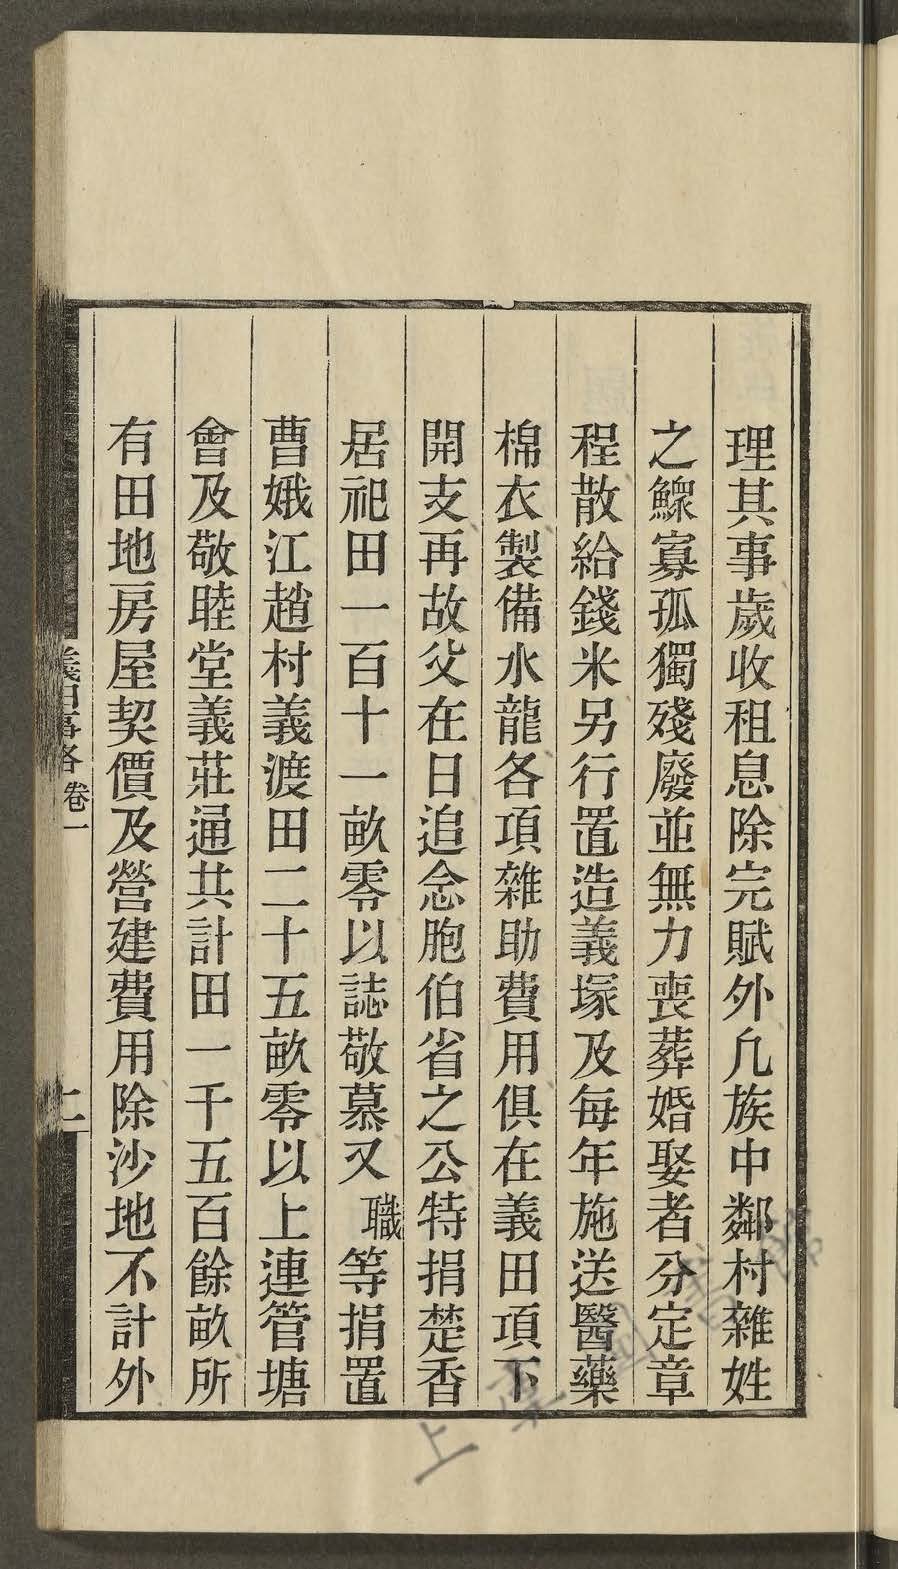 理其事歲收租息除完賦外凡族中鄰村雜姓
之鰥寡孤獨殘廢並無力喪葬婚娶者分定章
程散給錢米另行置造義塚及每年施送醫藥
棉衣製備水龍各項雜助費用俱在義田項下
開支再故父在日追念胞伯省之公特捐楚香
居祀田一百十一畝零以誌敬慕又職等捐置
曹娥江趙村義渡田二十五畝零以上連管塘
會及敬睦堂義莊通共計田一千五百餘畝所
有田地房屋契價及營建費用除沙地不計外
義田事略 卷一
二
上虞圖書館